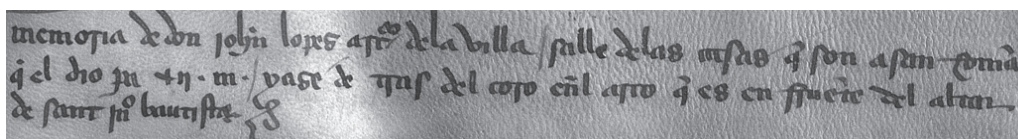 memoria de don joħn lopes arçº dela villa / salle delas mſas q̃ son a san
q̃ el dio pa · m · / yase de tras del coro enl̃ arco q̃ es en fruẽte del altar
de sant jnº bautista